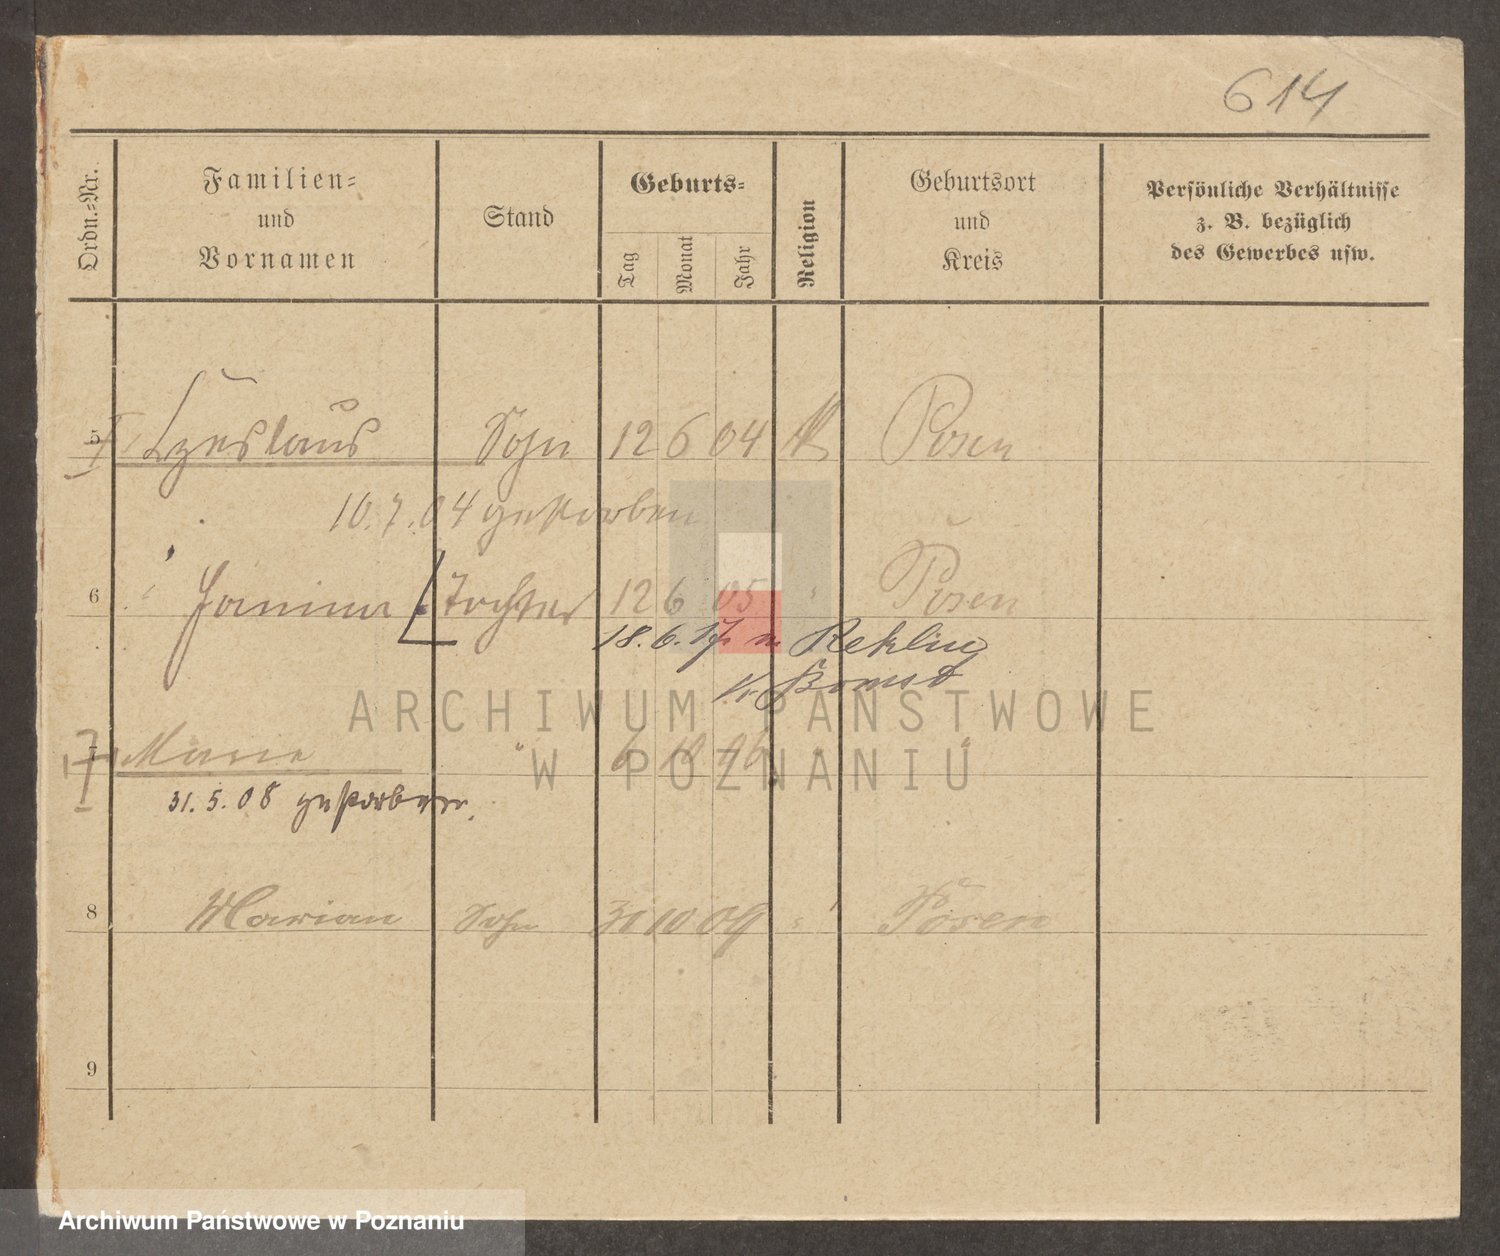 614
Ordn.-Nr.
Familien-
und
Vornamen
Stand
Geburts-
Tag
Monat
Jahr
Religion
Geburtsort
und
Kreis
Persönliche Verhältnisse
z. B. bezüglich
des Gewerbes usw.
5 Czeslaus Sohn 12 6 04 k Posen
10.7.04 gestorben
6 Janina Tochter 12 6 05 " Posen
18.6. Rekling
Kr. Bomst
ARCHIWUM PAŃSTWOWE
W POZNANIU
7 Marie " 6 10 06 " "
31.5.08 gestorben.
8 Marian Sohn 30 10 09 " Posen
9
Archiwum Państwowe w Poznaniu